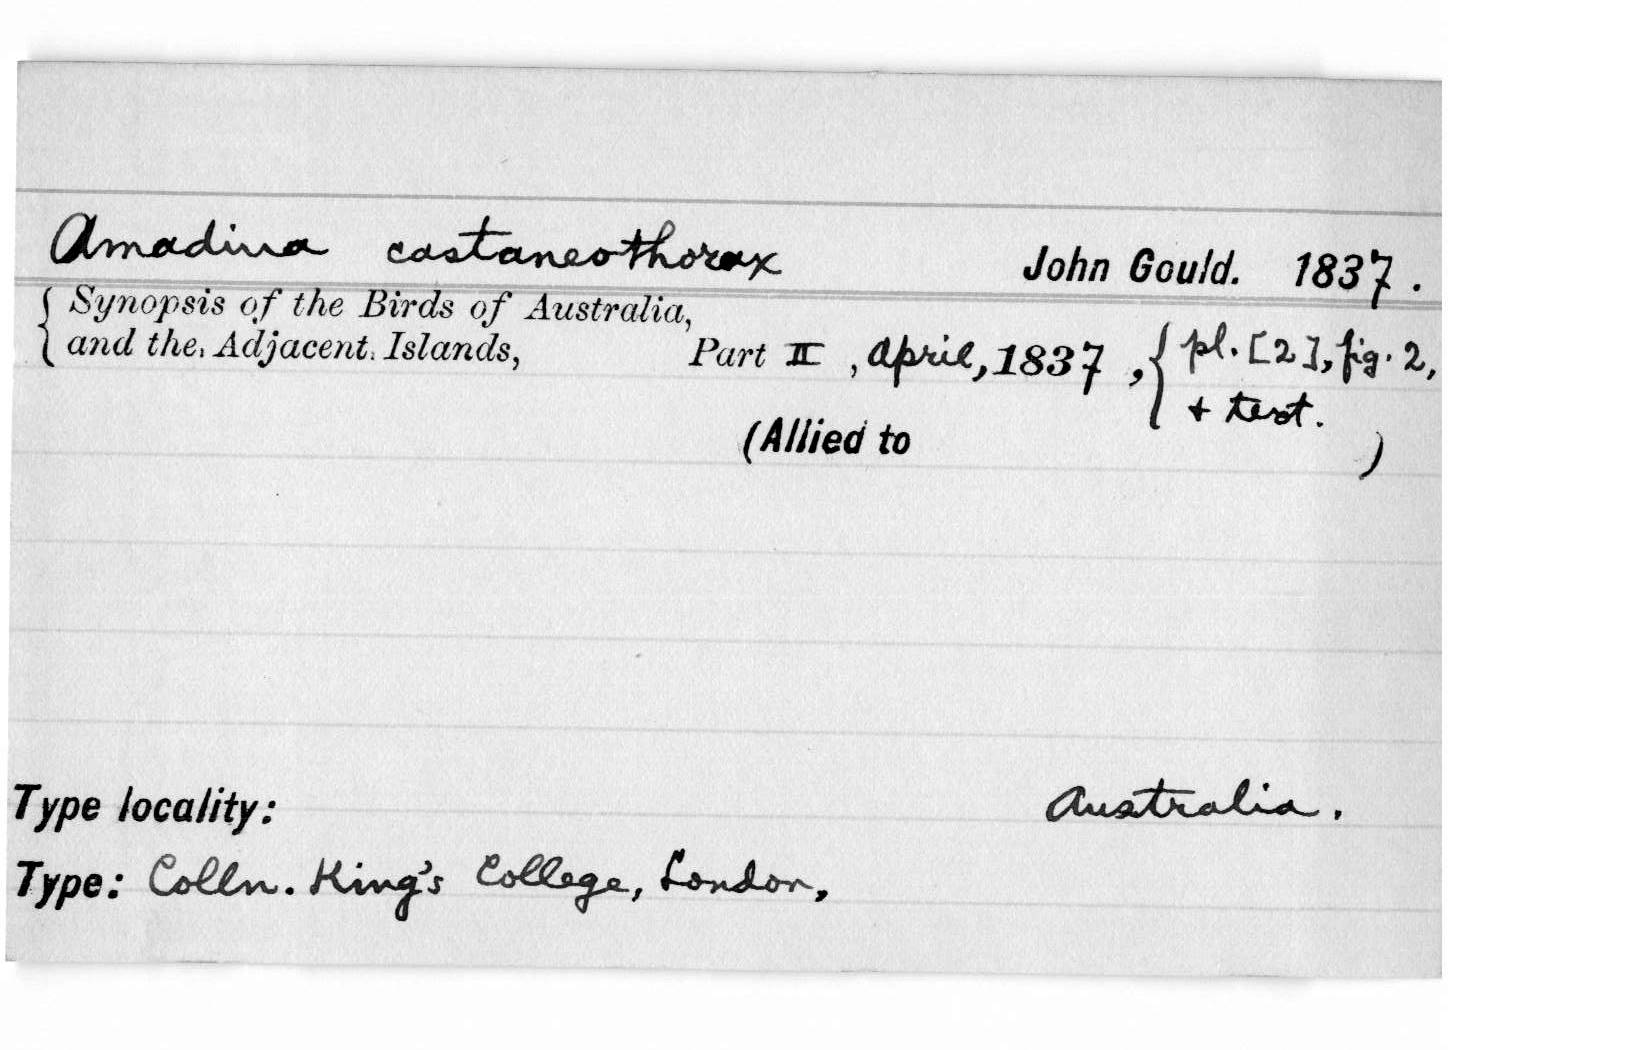 Amadina castaneothorax John Gould. 1837.
Synopsis of the Birds of Australia,
and the Adjacent Islands, Part II, April, 1837, pl. [2], fig. 2,
+ text.
(Allied to )
Type locality: Australia.
Type: Colln. King's College, London,